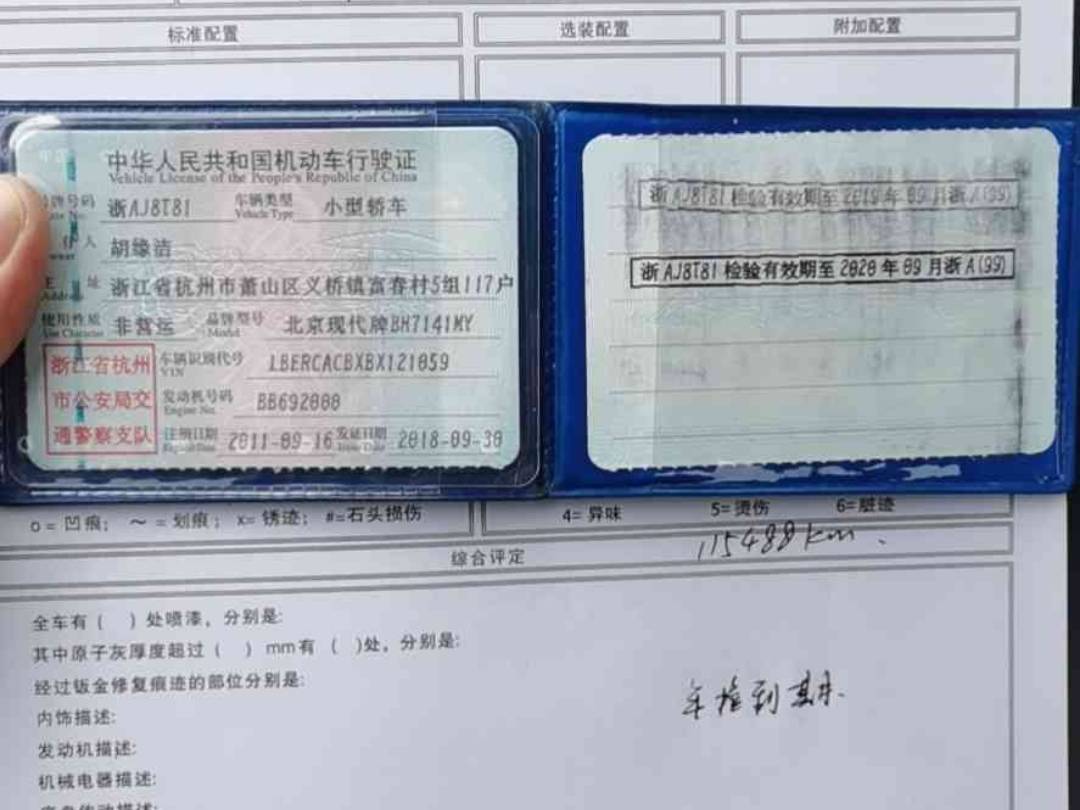 标准配置 选装配置 附加配置
中华人民共和国机动车行驶证
Vehicle License of the People's Republic of China
号牌号码 浙AJ8T81 车辆类型 小型轿车
Vehicle Type
人 胡缘洁
址 浙江省杭州市萧山区义桥镇富春村5组117户
Address
使用性质 非营运 品牌型号 北京现代牌BH7141MY
Use Character Model
浙江省杭州
市公安局交
通警察支队
车辆识别代号 LBERCACBXBX121059
VIN
发动机号码 BB692888
Engine No.
注册日期 2011-09-16 发证日期 2018-09-30
Register Date Issue Date
浙AJ8T81 检验有效期至 2019 年 09 月浙A(99)
浙AJ8T81 检验有效期至 2020 年 09 月浙A(99)
o = 凹痕; ～ = 划痕; x= 锈迹; #=石头损伤 4= 异味 5= 烫伤 6= 脏迹
综合评定
115488km.
全车有 ( ) 处喷漆，分别是:
其中原子灰厚度超过 ( ) mm有 ( )处，分别是:
经过钣金修复痕迹的部位分别是:
年检到期.
内饰描述:
发动机描述:
机械电器描述: